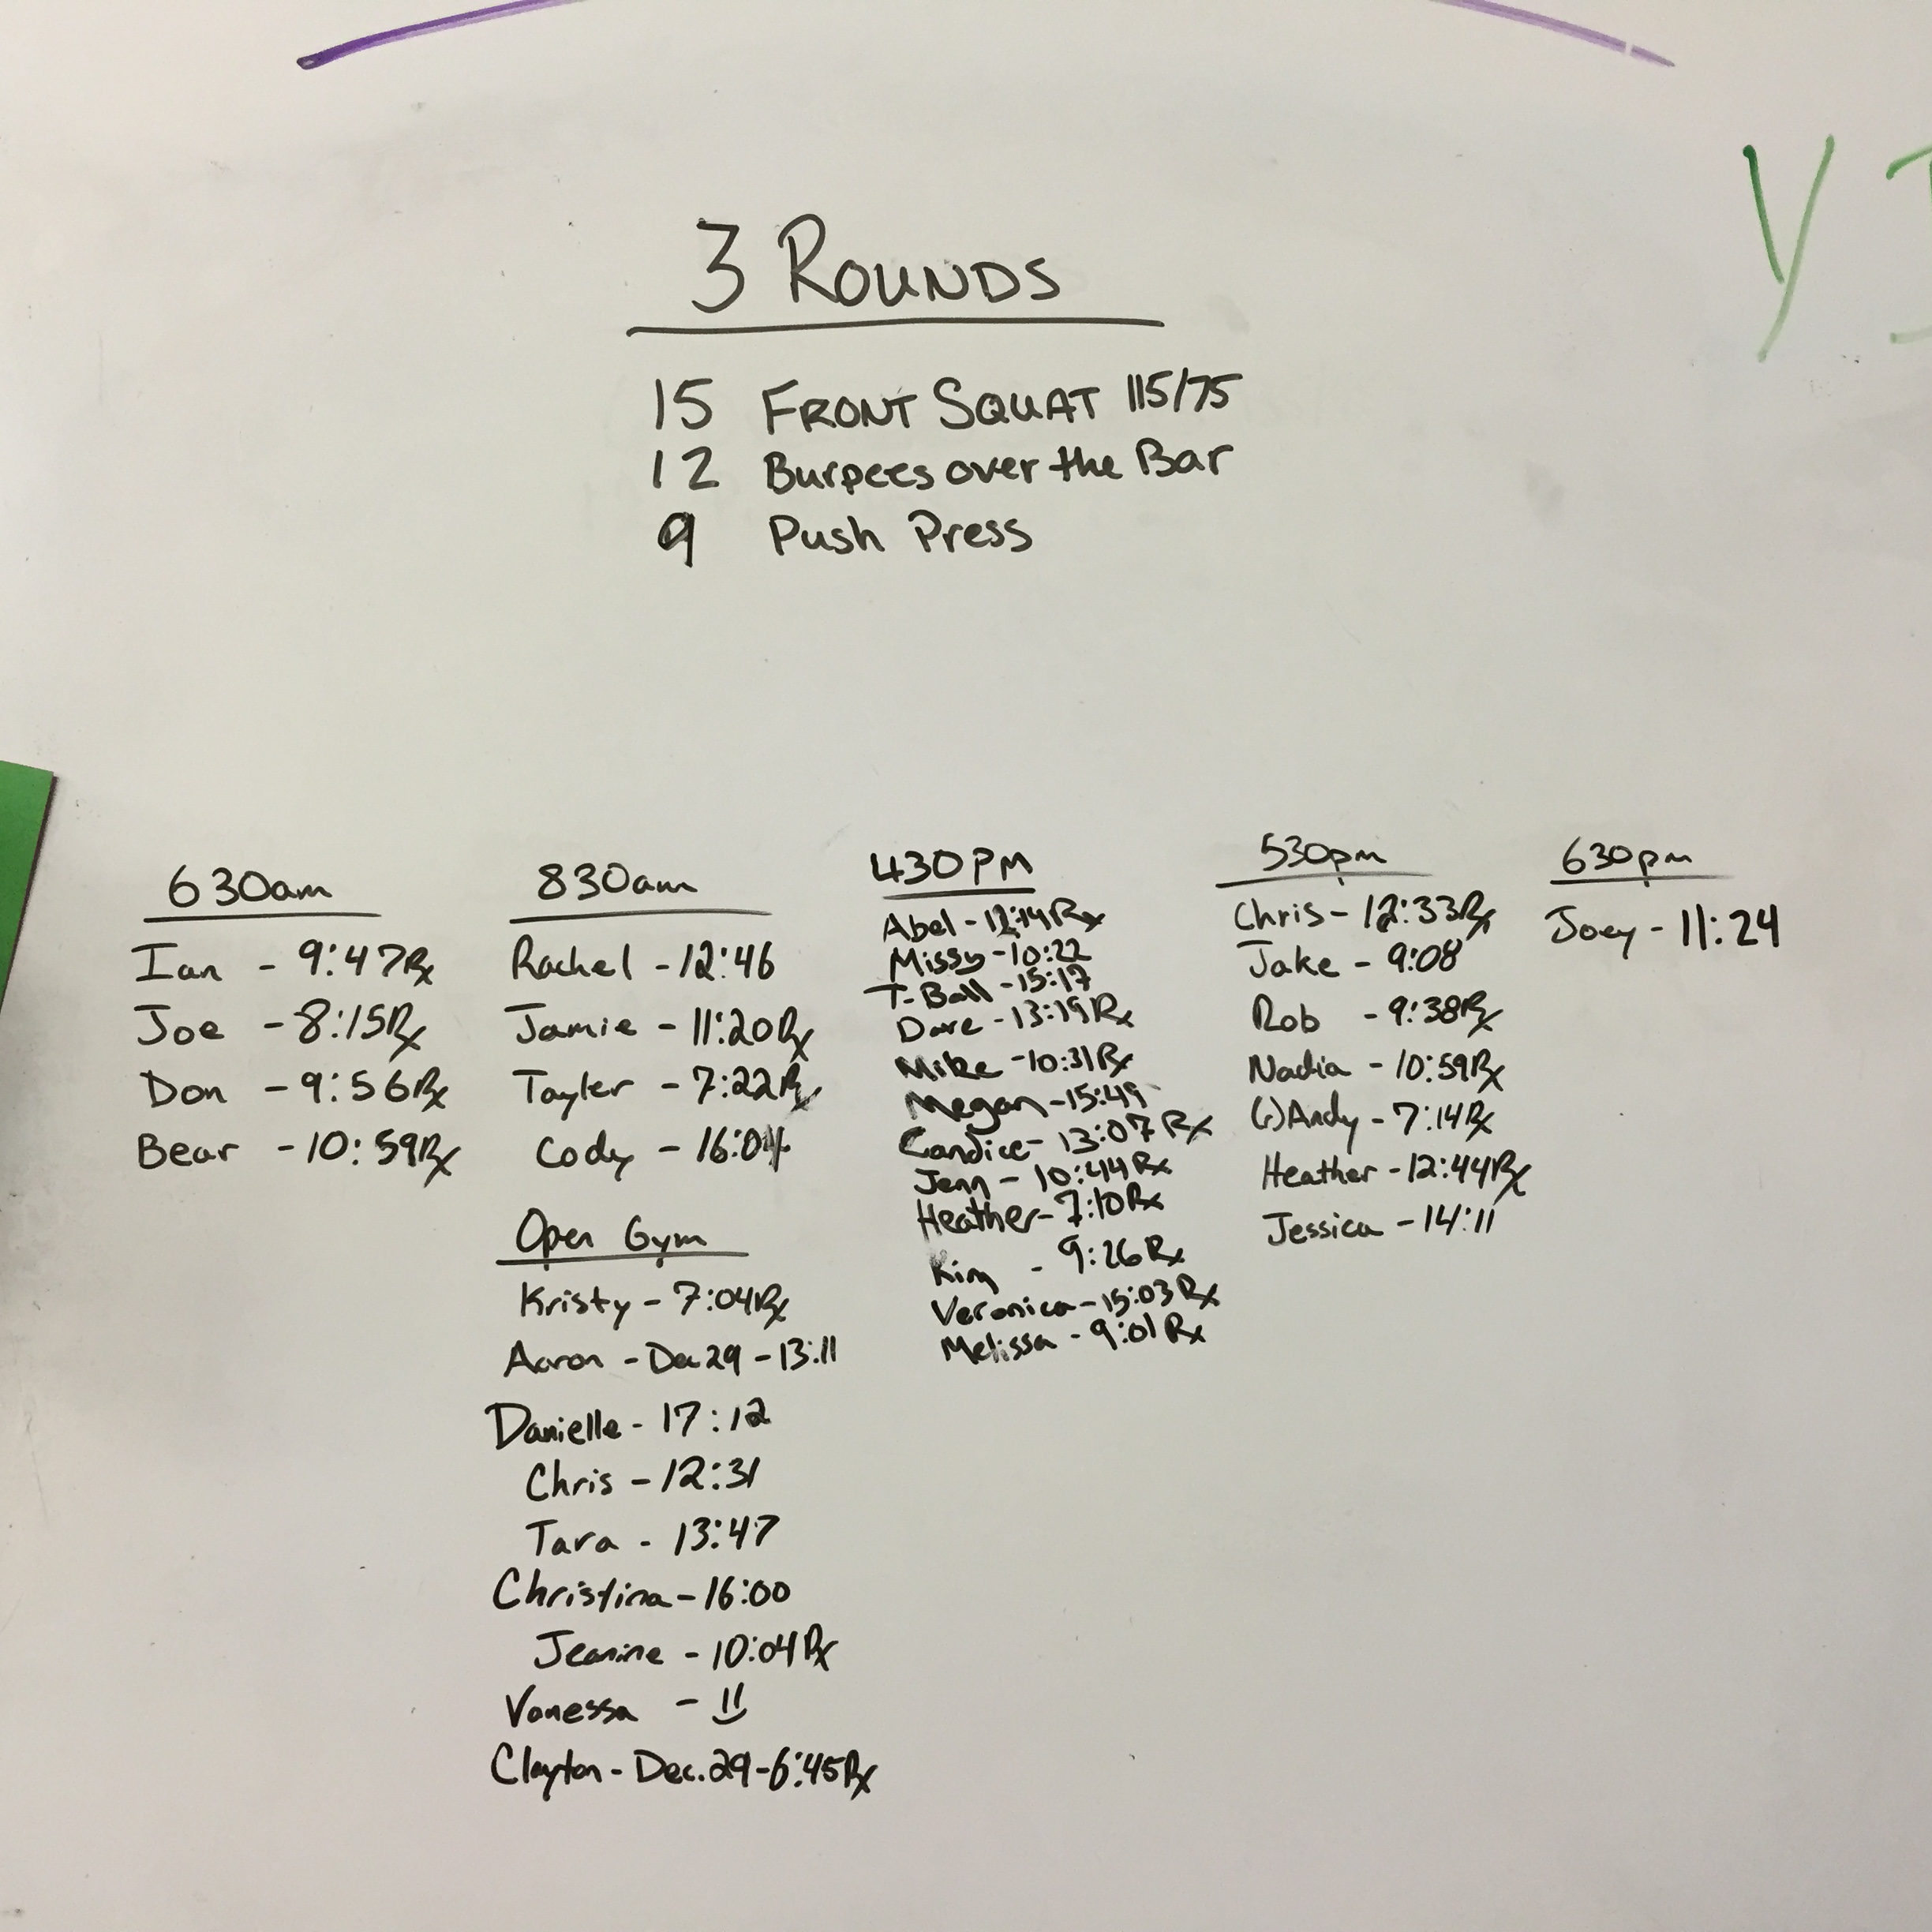 3 ROUNDS
15 FRONT SQUAT 115/75
12 Burpees over the Bar
9 Push Press
630am
Ian - 9:47Rx
Joe - 8:15Rx
Don - 9:56Rx
Bear - 10:59Rx
830am
Rachel - 12:46
Jamie - 11:20Rx
Tayler - 7:22Rx
Cody - 16:04
Open Gym
Kristy - 7:04Rx
Aaron - Dec 29 - 13:11
Danielle - 17:12
Chris - 12:31
Tara - 13:47
Christina - 16:00
Jeanine - 10:04Rx
Vanessa -
Clayton - Dec. 29 - 6:45Rx
430PM
Abel - Rx
Missy - 10:22
T-Ball - 15:17
Dave - 13:19Rx
Mike - 10:31Rx
Megan - 15:49
Candice - 13:07Rx
Jenn - 10:44Rx
Heather - 7:10Rx
Kim - 9:26Rx
Veronica - 15:03Rx
Melissa - 9:01Rx
530pm
Chris - 12:33Rx
Jake - 9:08
Rob - 9:38Rx
Nadia - 10:59Rx
Andy - 7:14Rx
Heather - 12:44Rx
Jessica - 14:11
630pm
Joey - 11:24
Y